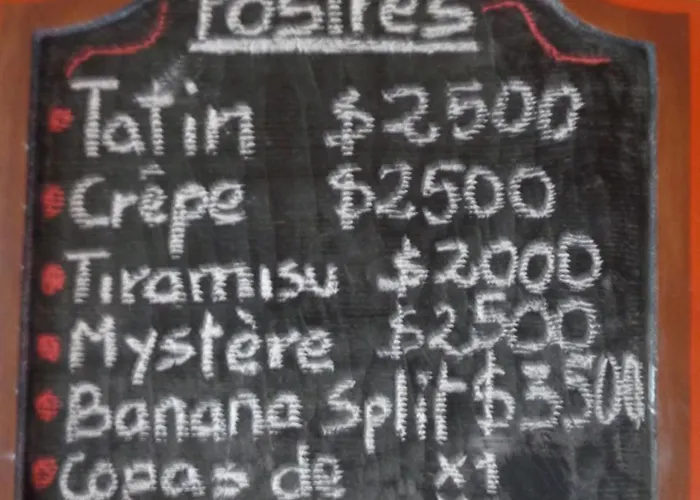 Postres
Tatin $2500
Crêpe $2500
Tiramisu $2000
Mystère $2500
Banana Split $3500
Copas de x1